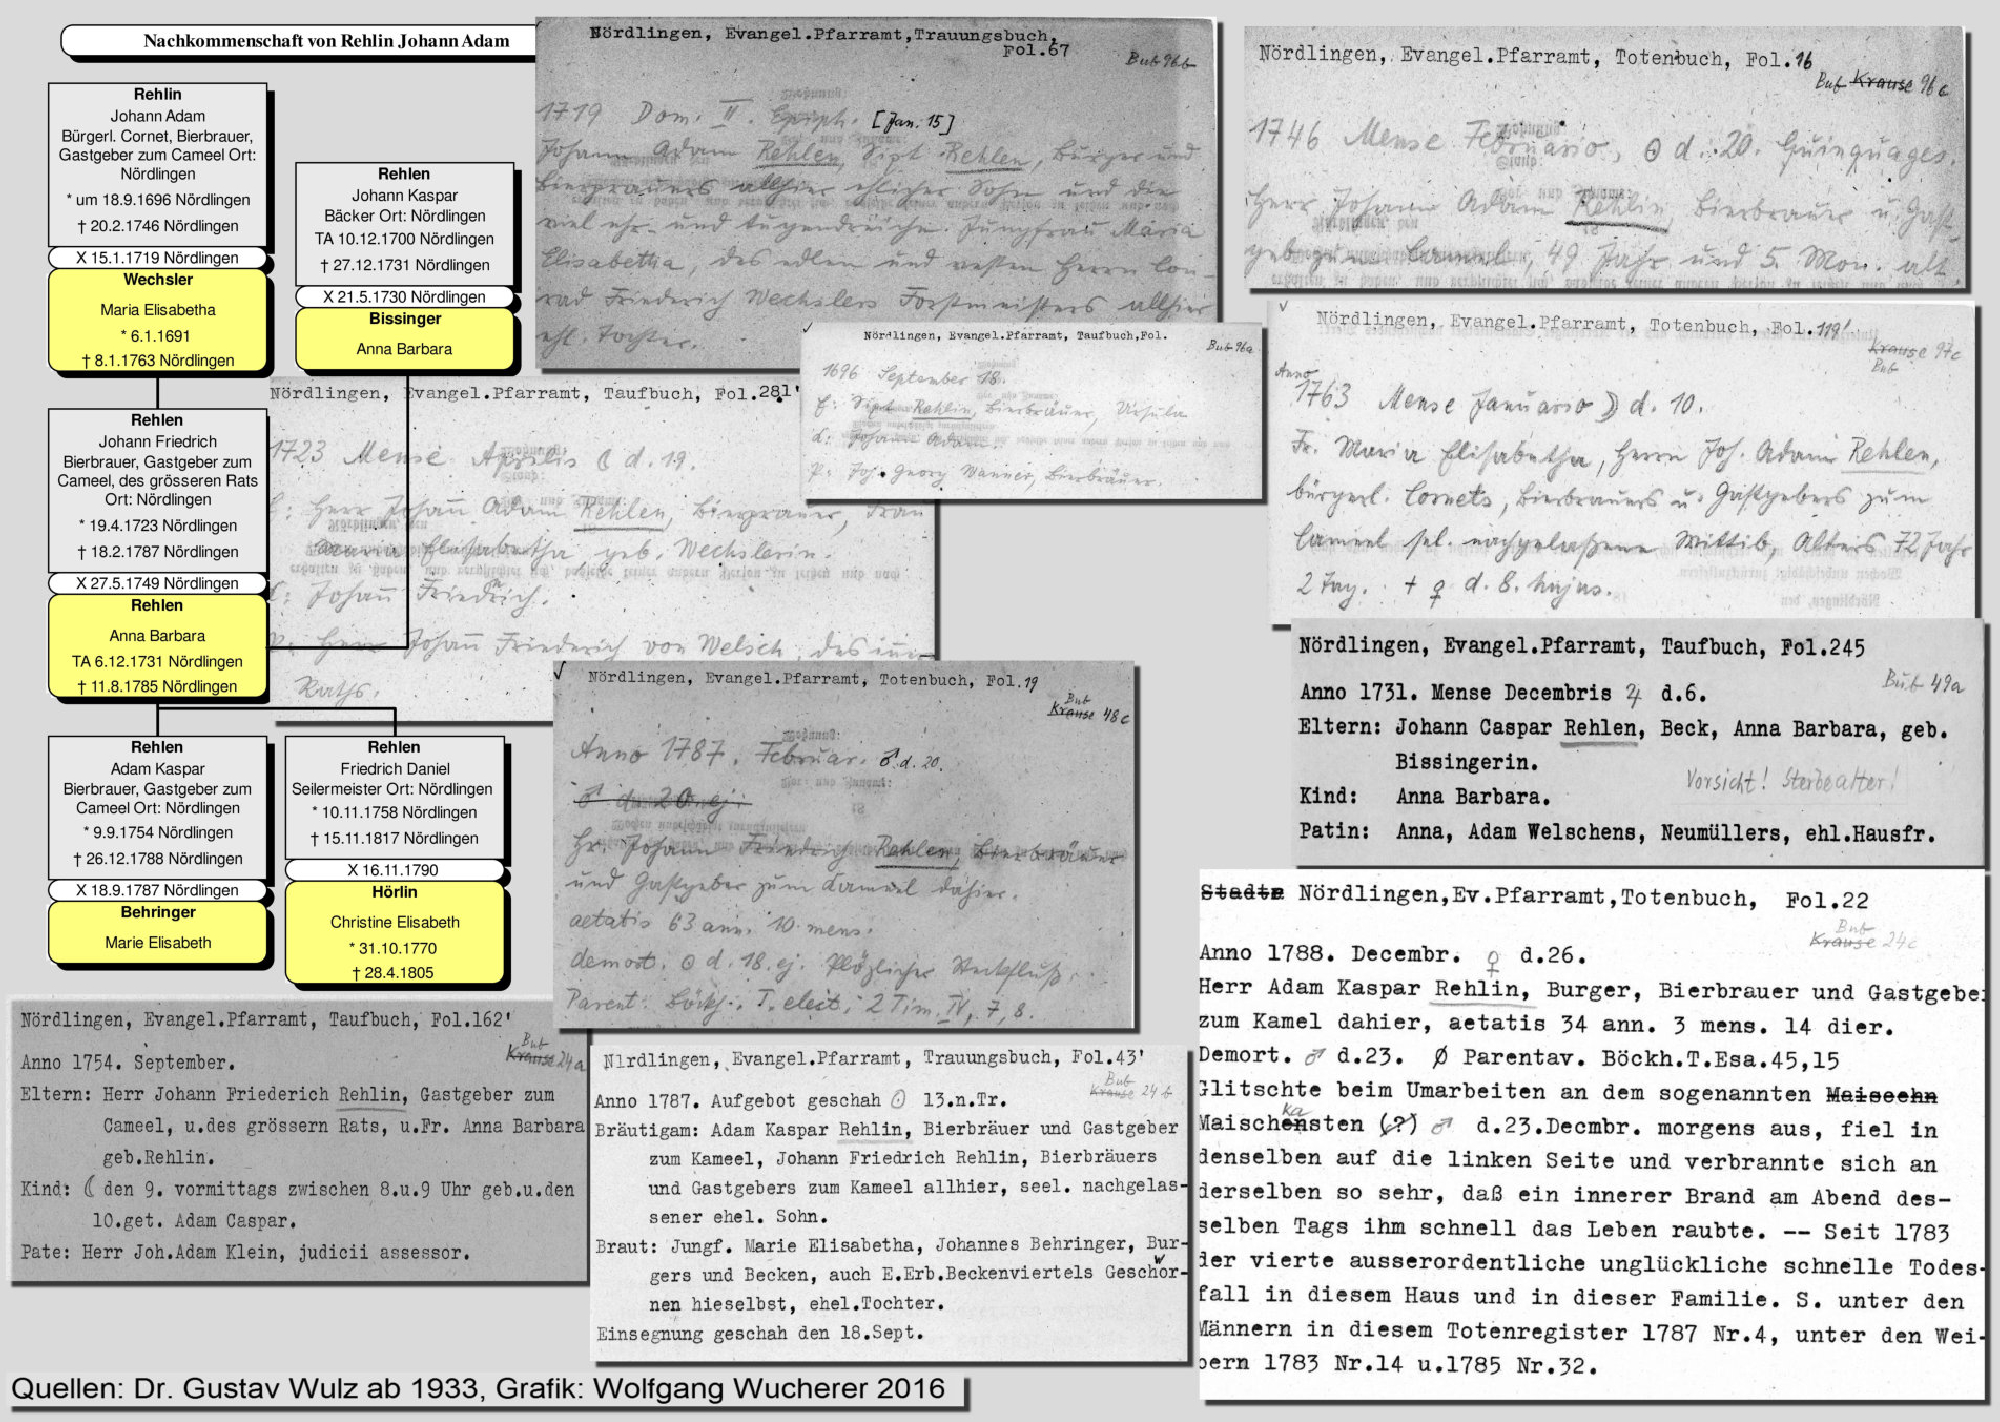 Nachkommenschaft von Rehlin Johann Adam
Rehlin
Johann Adam
Bürgerl. Cornet, Bierbrauer,
Gastgeber zum Cameel Ort:
Nördlingen
* um 18.9.1696 Nördlingen
† 20.2.1746 Nördlingen
X 15.1.1719 Nördlingen
Wechsler
Maria Elisabetha
* 6.1.1691
† 8.1.1763 Nördlingen
Rehlen
Johann Kaspar
Bäcker Ort: Nördlingen
TA 10.12.1700 Nördlingen
† 27.12.1731 Nördlingen
X 21.5.1730 Nördlingen
Bissinger
Anna Barbara
Rehlen
Johann Friedrich
Bierbrauer, Gastgeber zum
Cameel, des grösseren Rats
Ort: Nördlingen
* 19.4.1723 Nördlingen
† 18.2.1787 Nördlingen
X 27.5.1749 Nördlingen
Rehlen
Anna Barbara
TA 6.12.1731 Nördlingen
† 11.8.1785 Nördlingen
Rehlen
Adam Kaspar
Bierbrauer, Gastgeber zum
Cameel Ort: Nördlingen
* 9.9.1754 Nördlingen
† 26.12.1788 Nördlingen
X 18.9.1787 Nördlingen
Behringer
Marie Elisabeth
Rehlen
Friedrich Daniel
Seilermeister Ort: Nördlingen
* 10.11.1758 Nördlingen
† 15.11.1817 Nördlingen
X 16.11.1790
Hörlin
Christine Elisabeth
* 31.10.1770
† 28.4.1805
Nördlingen, Evangel.Pfarramt,Trauungsbuch,
Fol.67
Bub 96b
1719 Dom. II. Epiph. [Jan. 15]
Johann Adam Rehlen, Sixt Rehlen, Bürger und
Bierprauers allhier ehlicher Sohn und die
viel ehr- und tugendreiche Jungfrau Maria
Elisabetha, des edlen und vesten Herrn Con-
rad Friederich Wechslers Forstmeisters allhier
ehl. Tochter.
Nördlingen, Evangel.Pfarramt, Totenbuch, Fol.16
Bub Krause 96c
1746 Mense Februario, ☉ d. 20. Quinquages.
Herr Johann Adam Rehlin, Bierbrauer u. Gast-
geber zum Cameel, 49 Jahr und 5 Mon. alt
Nördlingen, Evangel.Pfarramt, Taufbuch,Fol.
Bub 96a
1696 September 18.
E: Sixt Rehlin, Bierbräuer, Ursula
K: Johann Adam.
P: Joh. Georg Wanner, Bierbräuer.
Nördlingen, Evangel.Pfarramt, Totenbuch, Fol.119'
Krause 97c
Bub
Anno
1763 Mense Januario ☽ d. 10.
Fr. Maria Elisabetha, Herrn Joh. Adam Rehlen,
bürgerl. Cornets, Bierbrauers u. Gastgebers zum
Cameel sel. nachgelaßene Wittib, Alters 72 Jahr
2 Tag. † ♀ d. 8. hujus.
Nördlingen, Evangel.Pfarramt, Taufbuch, Fol.281'
1723 Mense Aprilis ☾ d. 19.
E: Herr Johann Adam Rehlen, Bierprauer, Frau
Maria Elisabetha geb. Wechslerin.
K: Johann Friedrich.
P: Herr Johann Friederich von Welsch, des inn-
Raths.
Nördlingen, Evangel.Pfarramt, Totenbuch, Fol.19
Bub
Krause 48c
Anno 1787. Februar. ♂ d. 20.
♂ d. 20. ej.
Hr. Johann Friedrich Rehlen, Bierbräuer
und Gastgeber zum Kameel dahier.
aetatis 63 ann. 10 mens.
demort. ☉ d. 18. ej. Plözlicher Steckfluß.
Parent. Böckh. T. elect. 2 Tim. IV, 7, 8.
Nördlingen, Evangel.Pfarramt, Taufbuch, Fol.245
Bub 49a
Anno 1731. Mense Decembris ♃ d.6.
Eltern: Johann Caspar Rehlen, Beck, Anna Barbara, geb.
Bissingerin.
Vorsicht! Sterbealter!
Kind: Anna Barbara.
Patin: Anna, Adam Welschens, Neumüllers, ehl.Hausfr.
Stadtz Nördlingen,Ev.Pfarramt,Totenbuch, Fol.22
Bub
Krause 24c
Anno 1788. Decembr. ♀ d.26.
Herr Adam Kaspar Rehlin, Burger, Bierbrauer und Gastgeber
zum Kamel dahier, aetatis 34 ann. 3 mens. 14 dier.
Demort. ♂ d.23. Ø Parentav. Böckh.T.Esa.45,15
Glitschte beim Umarbeiten an dem sogenannten Maiseehn
Maischensten (?) ♂ d.23.Decmbr. morgens aus, fiel in
ka
denselben auf die linken Seite und verbrannte sich an
derselben so sehr, daß ein innerer Brand am Abend des-
selben Tags ihm schnell das Leben raubte. -- Seit 1783
der vierte ausserordentliche unglückliche schnelle Todes-
fall in diesem Haus und in dieser Familie. S. unter den
Männern in diesem Totenregister 1787 Nr.4, unter den Wei-
bern 1783 Nr.14 u.1785 Nr.32.
Nördlingen, Evangel.Pfarramt, Taufbuch, Fol.162'
Bub
Krause 24a
Anno 1754. September.
Eltern: Herr Johann Friederich Rehlin, Gastgeber zum
Cameel, u.des grössern Rats, u.Fr. Anna Barbara
geb.Rehlin.
Kind: ☾ den 9. vormittags zwischen 8.u.9 Uhr geb.u.den
10.get. Adam Caspar.
Pate: Herr Joh.Adam Klein, judicii assessor.
N1rdlingen, Evangel.Pfarramt, Trauungsbuch, Fol.43'
Bub
Krause 24b
Anno 1787. Aufgebot geschah ☉ 13.n.Tr.
Bräutigam: Adam Kaspar Rehlin, Bierbräuer und Gastgeber
zum Kameel, Johann Friedrich Rehlin, Bierbräuers
und Gastgebers zum Kameel allhier, seel. nachgelas-
sener ehel. Sohn.
Braut: Jungf. Marie Elisabetha, Johannes Behringer, Bur-
gers und Becken, auch E.Erb.Beckenviertels Geschwor-
nen hieselbst, ehel.Tochter.
Einsegnung geschah den 18.Sept.
Quellen: Dr. Gustav Wulz ab 1933, Grafik: Wolfgang Wucherer 2016